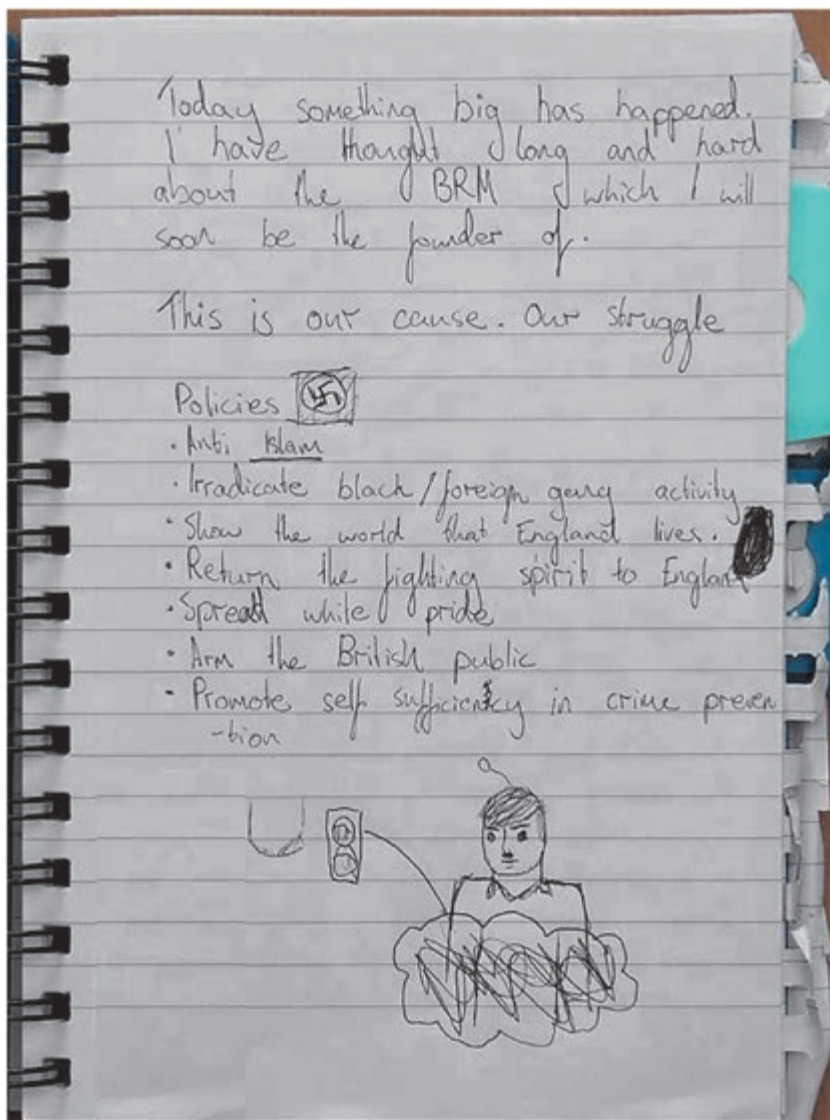 Today something big has happened.
I have thought long and hard
about the BRM which I will
soon be the founder of.
This is our cause. Our struggle
Policies
· Anti Islam
· Irradicate black/foreign gang activity
· Show the world that England lives.
· Return the fighting spirit to England
· Spread white pride
· Arm the British public
· Promote self sufficiency in crime preven
-tion